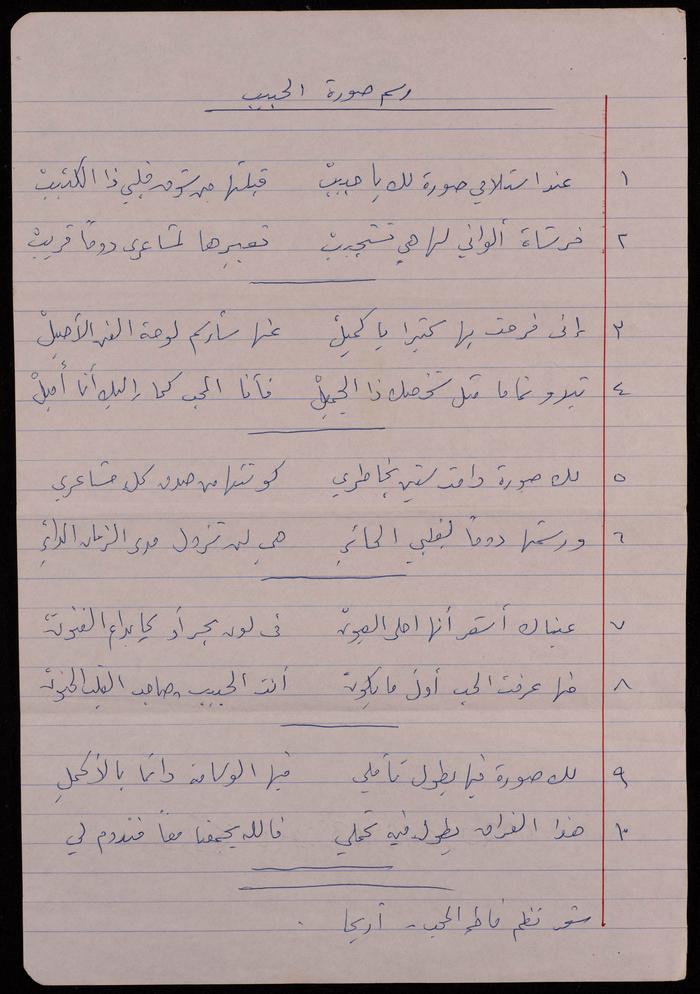 رسم صورة الحبيب
١ عند استلامي صورة لك يا حبيبْ قبلتها من شوق قلبي ذا الكئيبْ
٢ فرشاة ألواني لها هي تستجيبْ تعبيرها لمشاعري دوماً قريبْ
٣ إني فرحت بها كثيرا يا كميلْ عنها سأرسم لوحة الفن الأصيلْ
٤ تبدو تماما مثل شخصك ذا الجميلْ فأنا المحب كما إليك أنا أميلْ
٥ لك صورة وافت ستبني بخاطري كونتها من صدق كل مشاعري
٦ ورسمتها دوماً بقلبي الحائرِ هي لن تزول مدى الزمان الدائرِ
٧ عيناك أشعر أنها احلى العيونْ في لون بحر أو كإبداع الفنونْ
٨ فيها عرفت الحب أول ما يكونْ أنت الحبيب وصاحب القلب الحنونْ
٩ لك صورة فيها يطول تأملي فيها الوسامة دائما بالأكملِ
١٠ هذا الفراق يطول فيه تحملي فالله يجمعنا معاً فتدوم لي
شعر نظم أريحا .